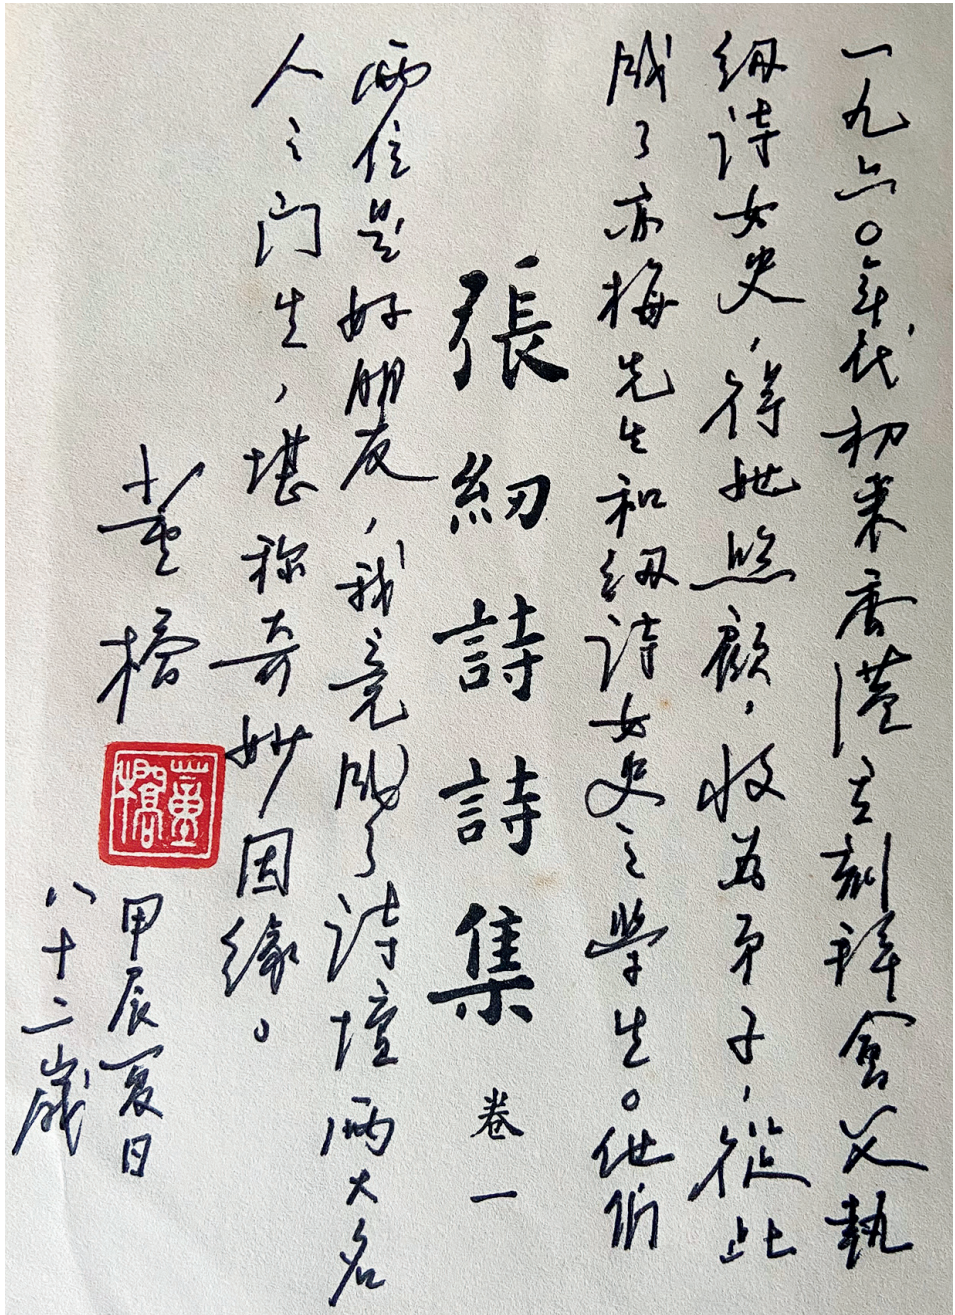 一九六〇年代初来香港立刻拜會父執
紉诗女史，得她照顧，收为弟子，從此
成了亦梅先生和紉诗女史之學生。他們
張紉詩詩集 卷一
兩位是好朋友，我竟成了诗壇兩大名
人之门生，堪称奇妙因緣。
董橋
董橋
甲辰夏日
八十二歲